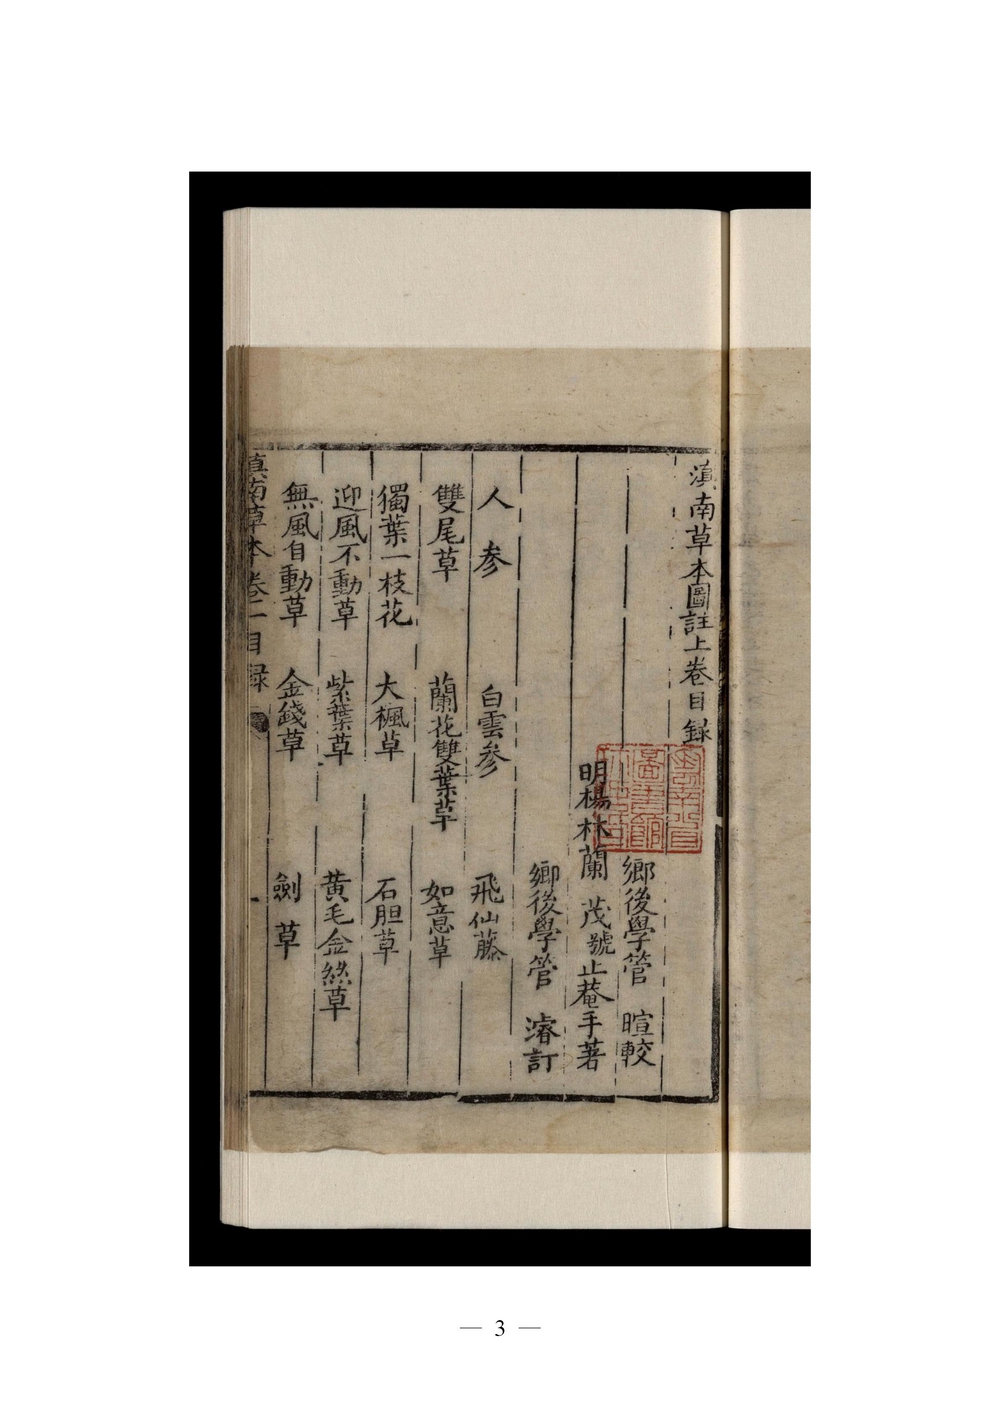 滇南草本圖註上卷目錄
鄉後學管 暄較
明楊林蘭 茂號止菴手著
鄉後學管 濬訂
人參 白雲參 飛仙藤
雙尾草 蘭花雙葉草 如意草
獨葉一枝花 大楓草 石胆草
迎風不動草 紫葉草 黄毛金絲草
無風自動草 金錢草 劍草
滇南草本卷二目録
— 3 —